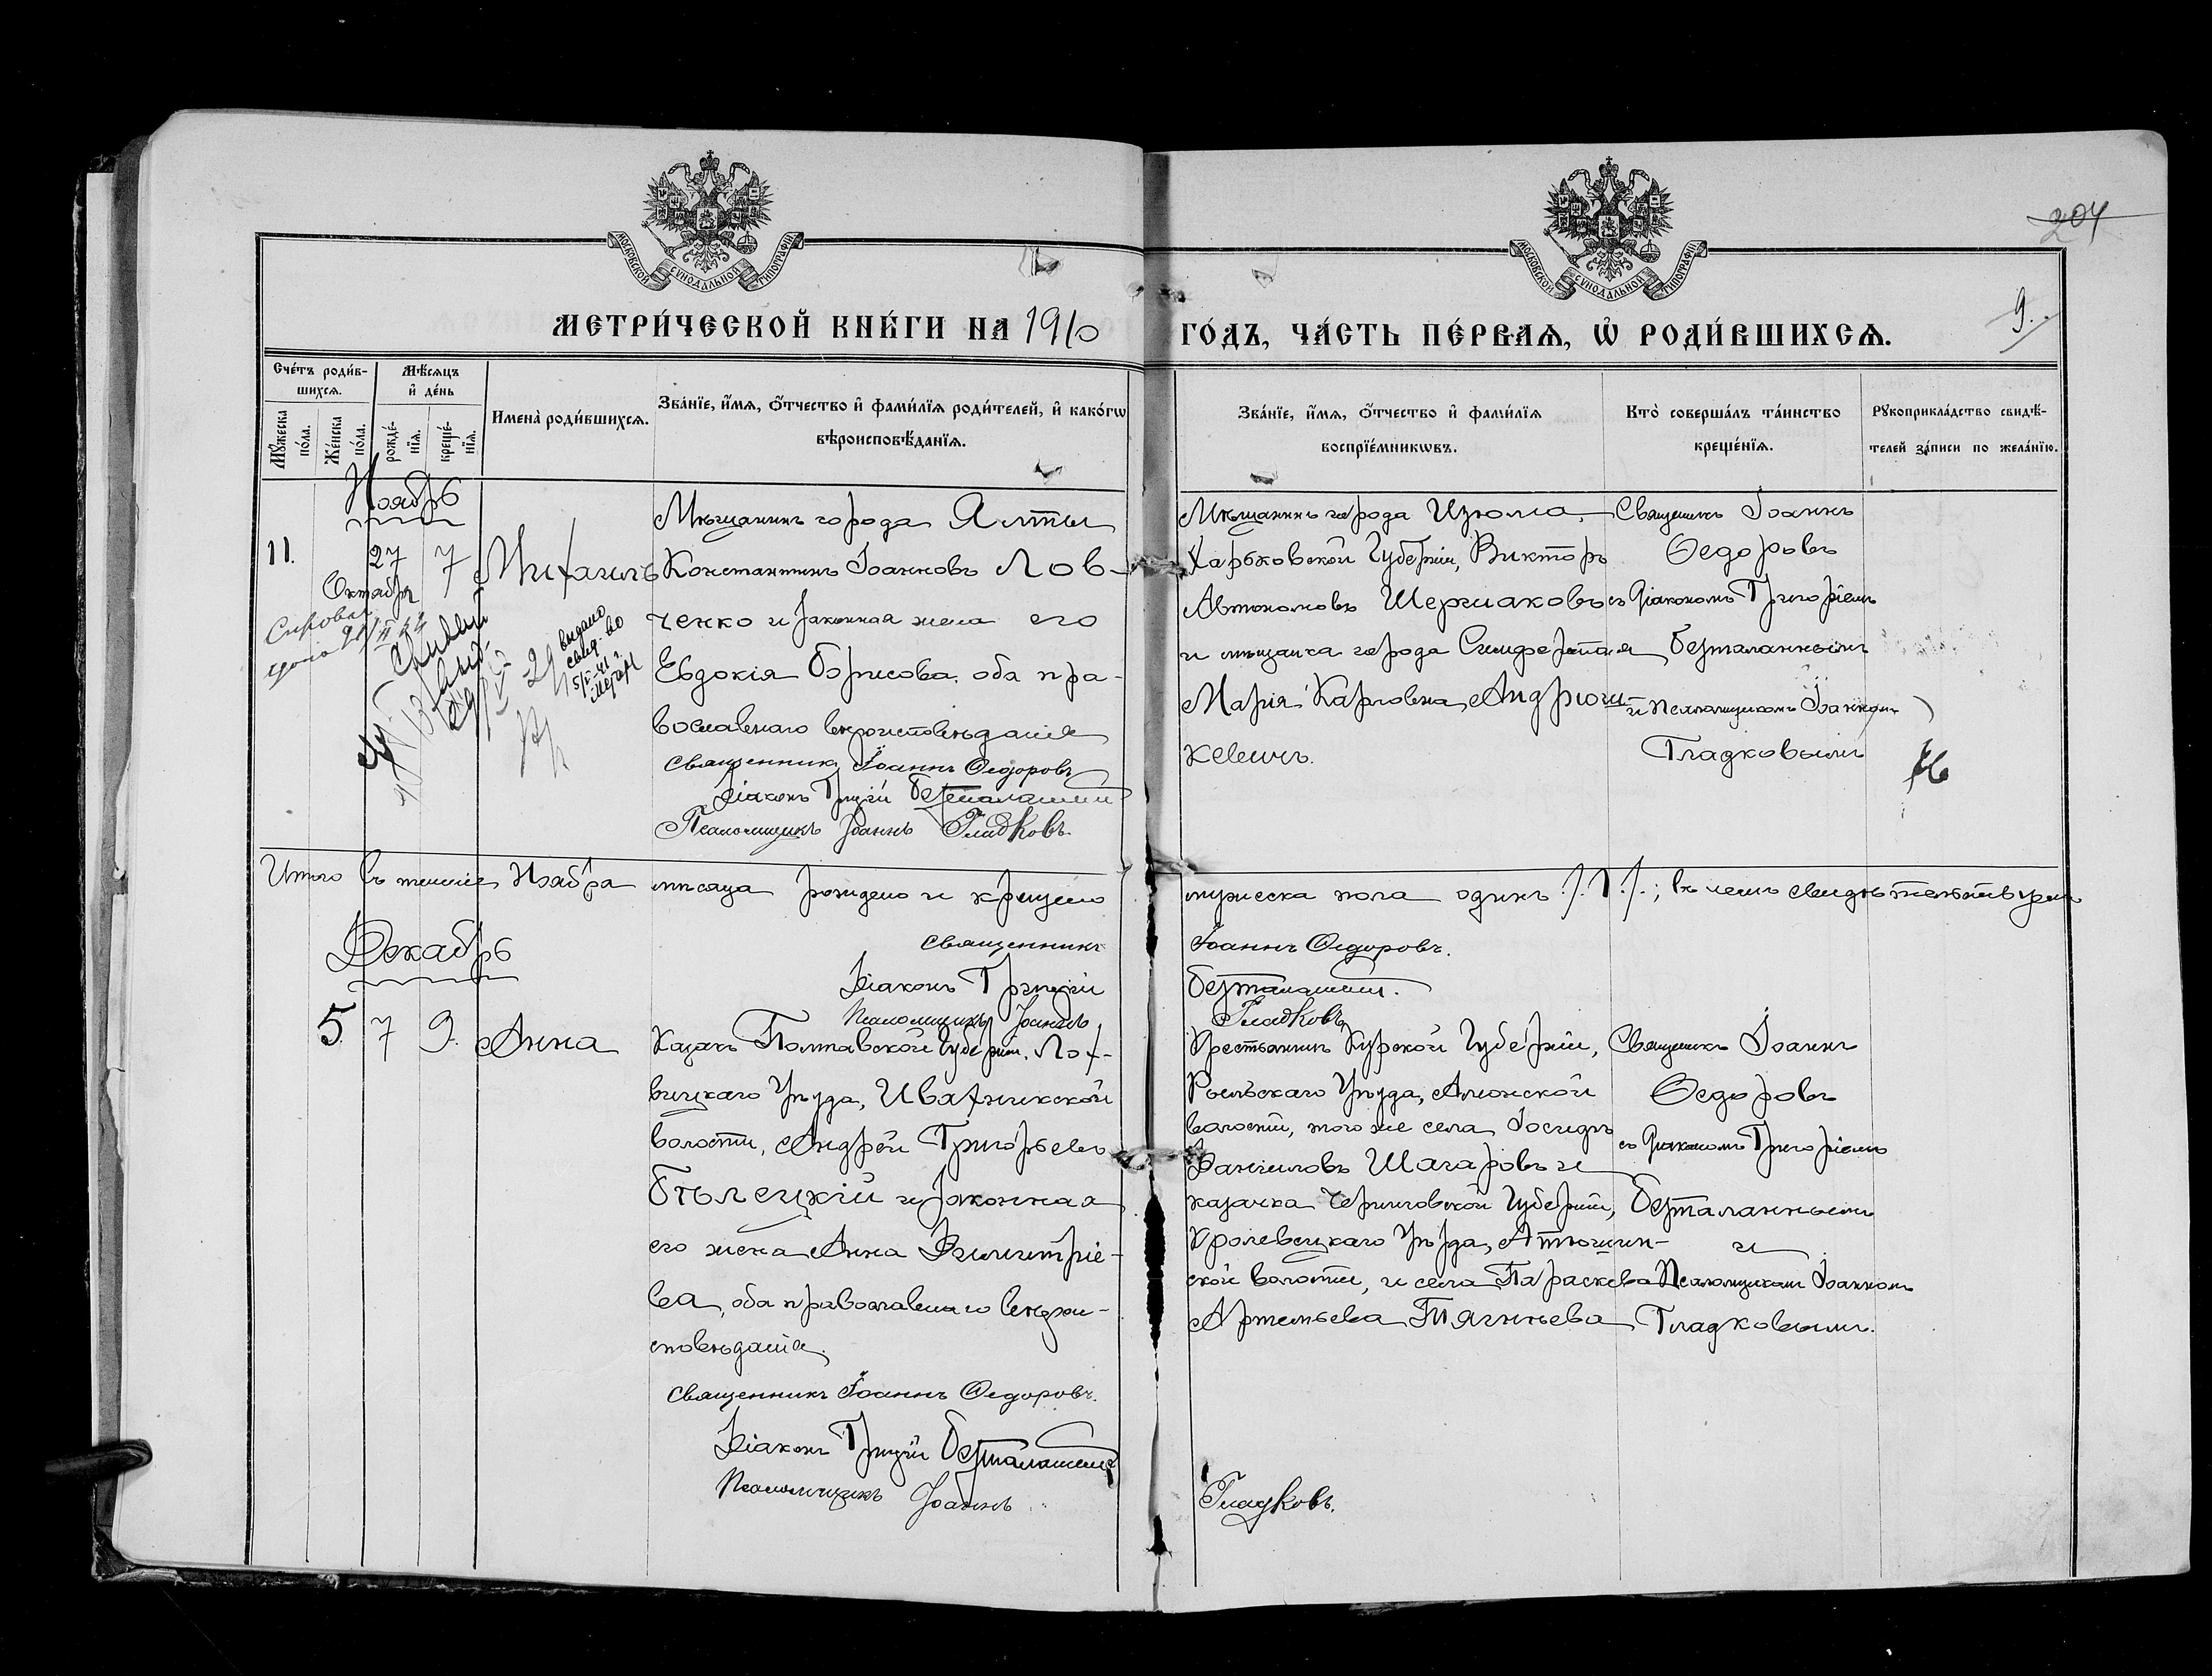 204
9.
МОСКОВСКОЙ СѴНОДАЛЬНОЙ ТИПОГРАФІИ
МОСКОВСКОЙ СѴНОДАЛЬНОЙ ТИПОГРАФІИ
МЕТРИ́ЧЕСКОЙ КНИ́ГИ НА 1910 ГО́ДЪ, ЧА́СТЬ ПЕ́РВАѦ, Ѡ҆ РОДИ́ВШИХСѦ.
Сче́тъ роди́в-
шихсѧ.
Мꙋ́жеска по́ла.
Же́нска по́ла.
Мѣ́сѧцъ
и҆ де́нь
рожде́-
нїѧ.
креще́-
нїѧ.
Имена̀ роди́вшихсѧ.
Зва́нїе, и҆́мѧ, ѻ҆́тчество и҆ фами́лїѧ роди́телей, и҆ како́гѡ
вѣроисповѣ́данїѧ.
Зва́нїе, и҆́мѧ, ѻ҆́тчество и҆ фами́лїѧ
воспрїе́мникѡвъ.
Кто̀ соверша́лъ та́инство
креще́нїѧ.
Рꙋкоприкла́дство свидѣ́-
телей за́писи по жела́нїю.
Ноябрь
11. 27 7 Михаилъ
Октября
выдано
свид-во
Мѣщанинъ города Ялты
Константинъ Іоанновъ Лов-
ченко и законная жена его
Евдокія Борисова, оба пра-
вославнаго вѣроисповѣданія
Священникъ Іоаннъ Ѳедоровъ
Діаконъ Григорій Безталанный
Псаломщикъ Іоаннъ Гладковъ.
Мѣщанинъ города Изюма,
Харьковской Губерніи, Викторъ
Автономовъ Шермаковъ
и мѣщанка города Симферополя
Марія Карловна Андрюш-
кевичъ.
Священникъ Іоаннъ
Ѳедоровъ
съ Діакономъ Григоріемъ
Безталаннымъ
и Псаломщикомъ Іоанномъ
Гладковымъ
Итого въ теченіе Ноября мѣсяца рождено и крещено мужеска пола одинъ /.1./; въ чемъ свидѣтельствуемъ
Священникъ Іоаннъ Ѳедоровъ.
Діаконъ Григорій Безталанный.
Псаломщикъ Іоаннъ Гладковъ
Декабрь
5. 7 9. Анна
Казакъ Полтавской Губерніи, Лох-
вицкаго Уѣзда, Ивахникской
волости, Андрей Григорьевъ
Бѣлецкій и законная
его жена Анна Димитріе-
ва, оба православнаго вѣрои-
сповѣданія.
Священникъ Іоаннъ Ѳедоровъ.
Діаконъ Григорій Безталанный
Псаломщикъ Іоаннъ Гладковъ.
Крестьянинъ Курской Губерніи,
Рыльскаго Уѣзда,
волости, того же села Іосифъ
Даниловъ Шагаровъ и
казачка Черниговской Губерніи,
Кролевецкаго Уѣзда, Атюшин-
ской волости, и села Параскева
Артемьева Тягнѣева
Священникъ Іоаннъ
Ѳедоровъ
съ Діакономъ Григоріемъ
Безталаннымъ
и
Псаломщикомъ Іоанномъ
Гладковымъ.